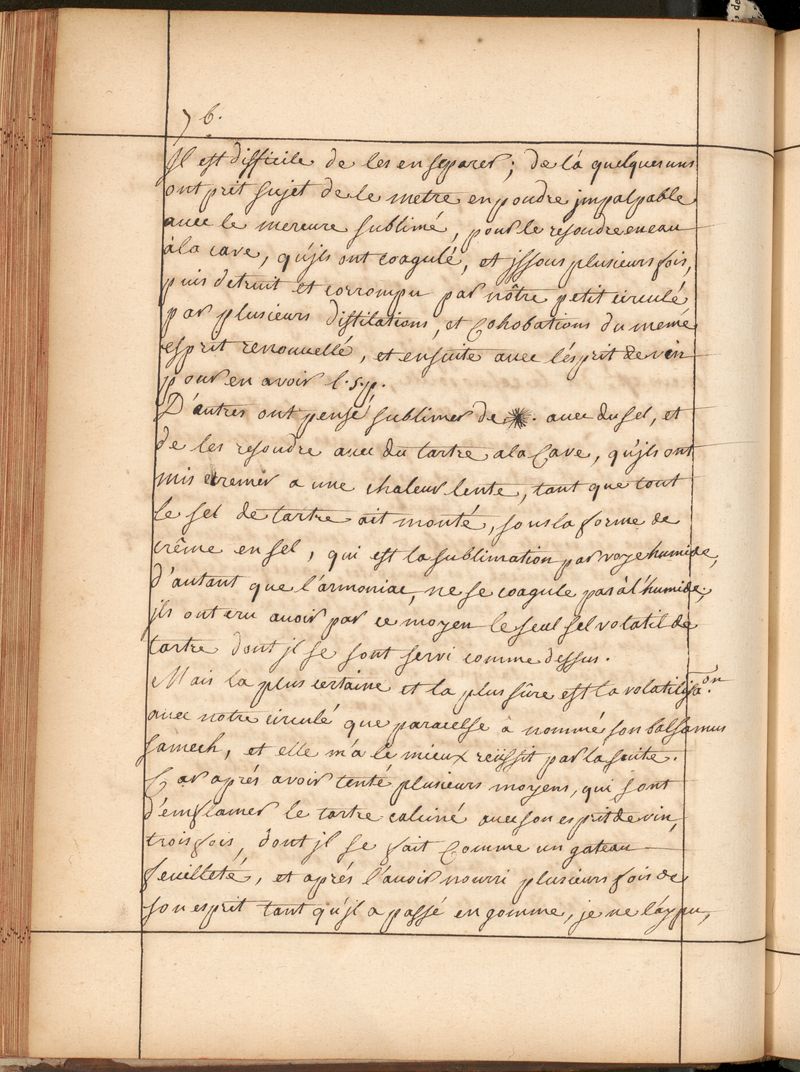 76.
Il est difficile de les en separer; de la quelques uns
ont prit sujet de le metre en poudre jmpalpable
avec le mercure sublimé, pour le resoudre en eau
àla cave, qu'jls ont coagulé, et jssous plusieurs fois,
puis detruit et corrompu par nôtre petit circulé
par plusieurs distilations, et Cohobations du memé
esprit renouvellé, et ensuite avec lésprit de vin
pour en avoir l.s.p.
D'autres ont pensé sublimer de ✴. avec du sel, et
de les resoudre avec du tartre ala Cave, qu'jls ont
mis cremer a une chaleur lente, tant que tout
le sel de tartre ait monté, sous la forme de
crême en sel, qui est la sublimation par voye humide,
d'autant que l'armoniac, ne se coagule pas à l'humide;
jls ont cru avoir par ce moyen le seul sel volatil de
tartre dont jl se sont servi comme dessus.
Mais la plus certaine et la plus sûre est la volatilisa.on
avec notre circulé que paracelse à nommé son balsamus
samech, et elle m'a le mieux reüssit par la suite.
Car aprés avoir tenté plusieurs moyens, qui sont
d'emflamer le tartre calciné avec son esprit de vin,
trois fois, dont jl se fait Comme un gateau
feuilleté, et aprés l'avoir nourri plusieurs fois de
son esprit tant qu'jl a passé en gomme, je ne l'ay pu,